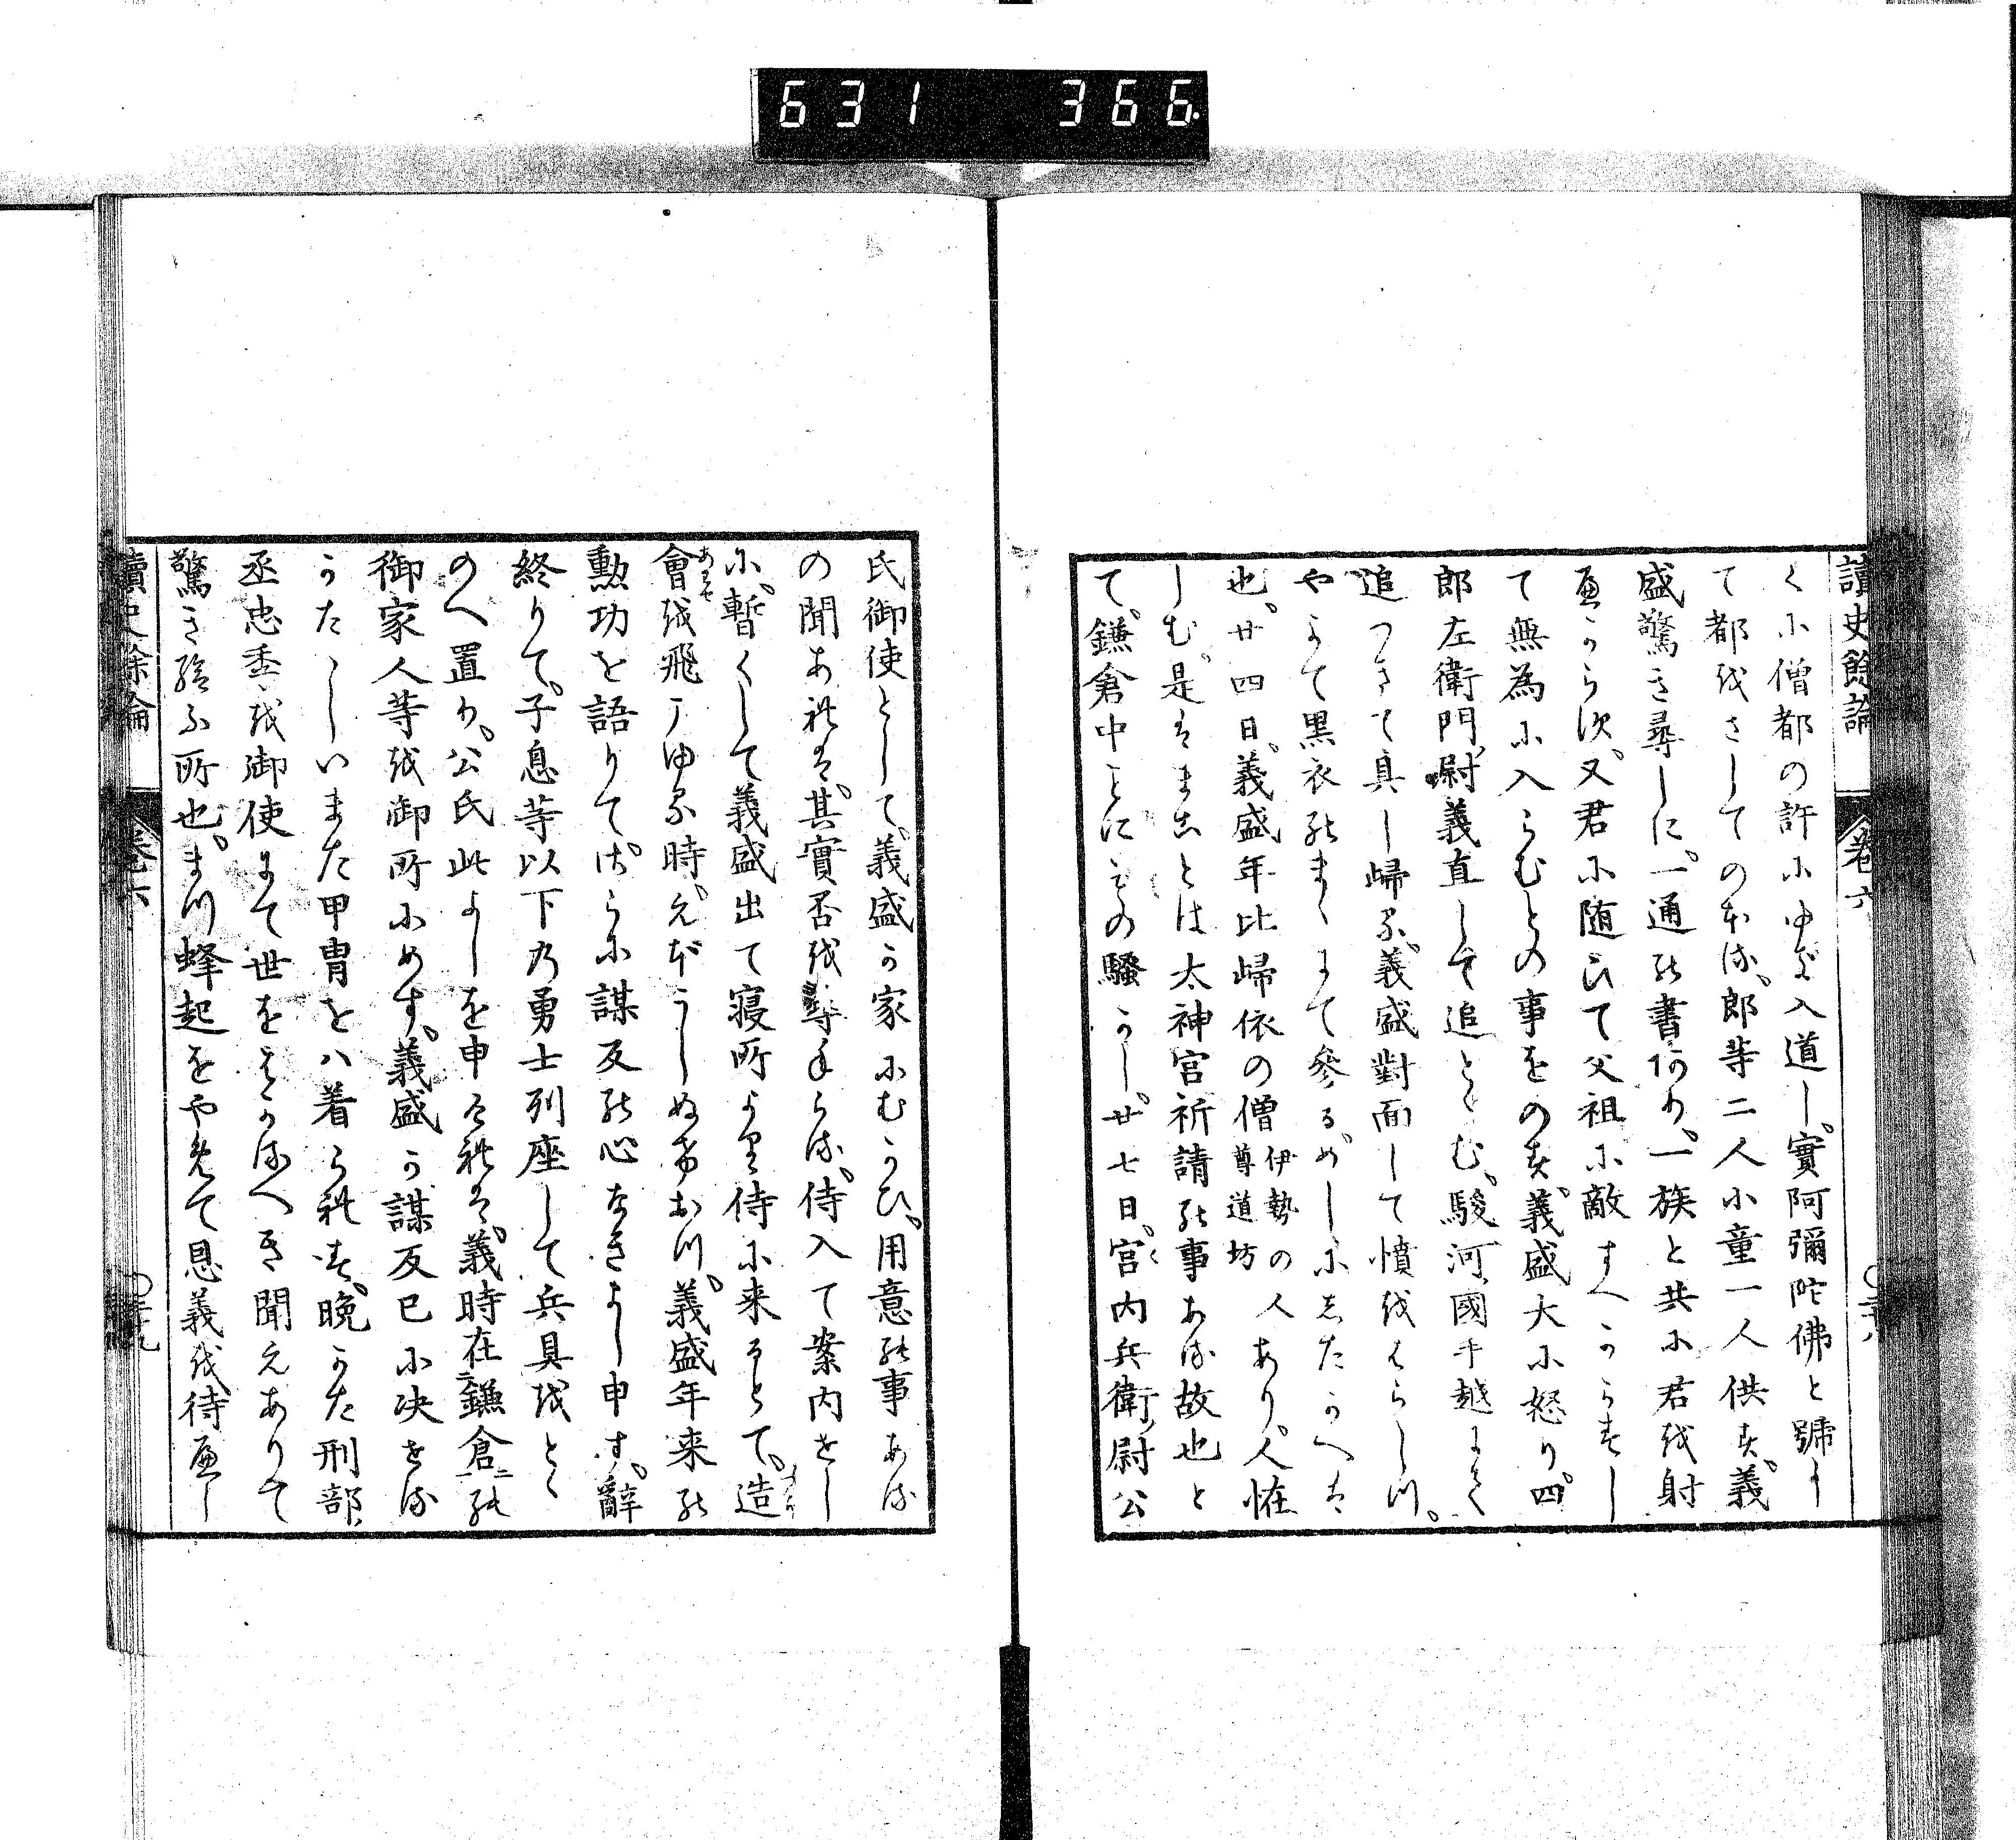 631 366
讀史餘論 卷六
く小僧都の許小ゆき入道し實阿彌陀佛と號し
て都越さしてのほる郎等二人小童一人供す義
盛驚き尋しに一通の書あり一族と共に君越射
へからす又君に随ひて父祖に敵すへからすし
て無為に入らむとの事をのす義盛大に怒り四
郎左衛門尉義直して追とむ駿河國手越よて
追つきて具し帰る義盛對面して憤越はらしつ
やよて黒衣のまゝよて參るめしにしたかへは
也廿四日義盛年比歸依の僧伊勢の人尊道坊あり人怪
しむ是はまことは太神宮祈請の事ある故也と
て鎌倉中ことにもの騒かし廿七日宮内兵衛尉公
氏御使として義盛か家にむかひ用意の事ある
の聞あれは其實否越尋ねらる侍入て案内せし
に暫くして義盛出て寝所より侍に来るとて造
會越飛こゆる時えぼうしぬけおつ義盛年来の
勲功を語りてさらに謀反の心なきよし申す辭
終りて子息等以下乃勇士列座して兵具越とゝ
のへ置り公氏此よしを申けれは義時在鎌倉の
御家人等越御所にめす義盛か謀反已に决せる
うたゝしいまた甲冑をハ着られす晩かた刑部
丞忠季越御使よて世をはかるへき聞えありて
驚き給ふ所也まつ蜂起をやめて恩義越待へし
讀史餘論 卷六